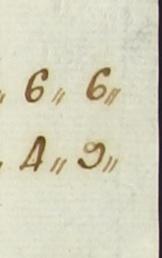 6 〃 6 〃
4 〃 9 〃